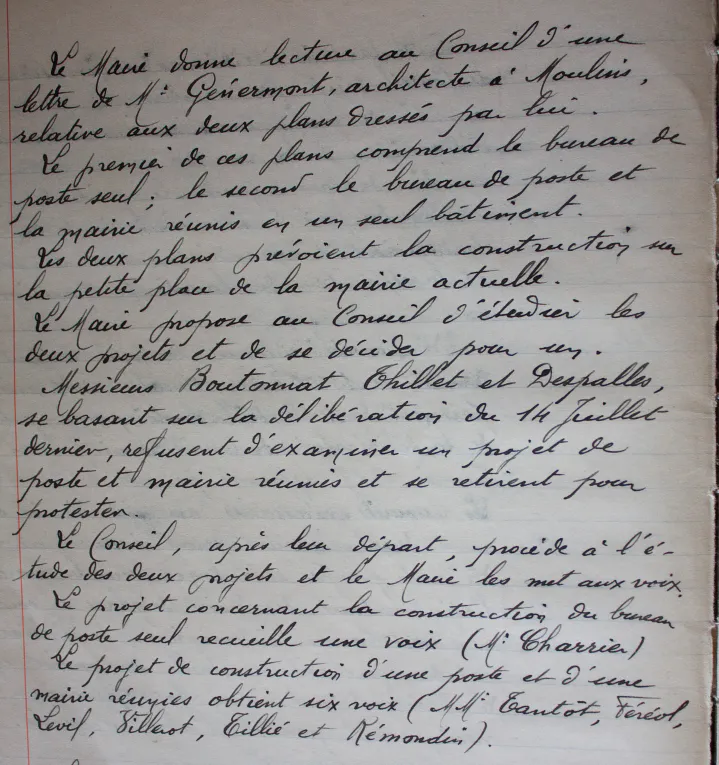 Le Maire donne lecture au Conseil d'une
lettre de Mr. Génermont, architecte à Moulins,
relative aux deux plans dressés par lui.
Le premier de ces plans comprend le bureau de
poste seul ; le second le bureau de poste et
la mairie réunis en un seul bâtiment.
Les deux plans prévoient la construction sur
la petite place de la mairie actuelle.
Le Maire propose au Conseil d'étudier les
deux projets et de se décider pour un.
Messieurs Boutonnat Thillet et Despalles,
se basant sur la délibération du 14 Juillet
dernier, refusent d'examiner un projet de
poste et mairie réunies et se retirent pour
protester.
Le Conseil, après leur départ, procède à l'é-
tude des deux projets et le Maire les met aux voix.
Le projet concernant la construction du bureau
de poste seul recueille une voix (Mr. Charrier)
Le projet de construction d'une poste et d'une
mairie réunies obtient six voix (MMrs. Tantôt, Féréol,
Levil, Villerot, Tillié et Rémondin).